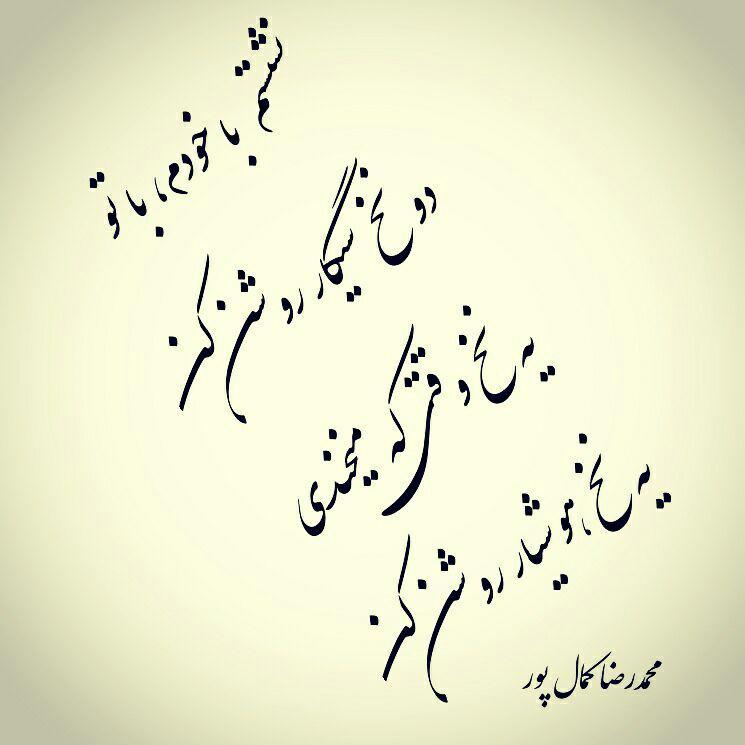 نشستم با خودم، با تو
دو نخ سیگار روشن کن
یه نخ وقتی که میخندی
یه نخ، هوشیار روشن کن
محمدرضا کمال پور